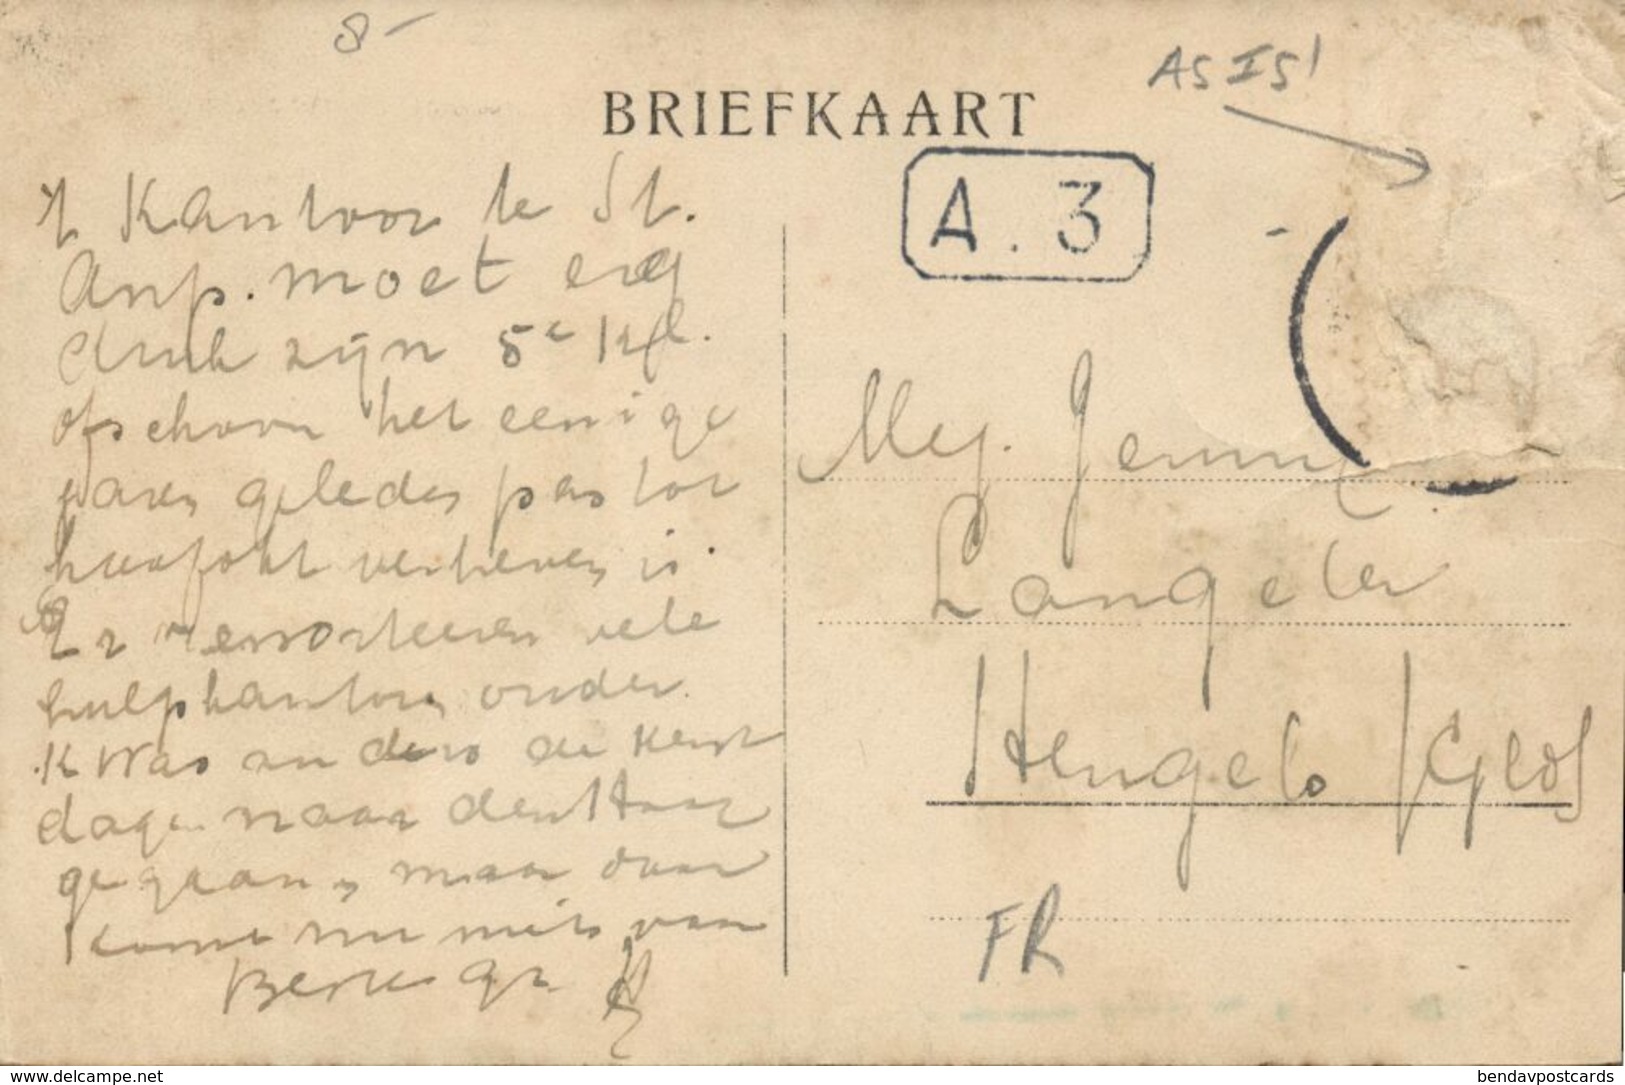 8-
AS IS!
BRIEFKAART
A. 3
't Kantoor te St.
Anp. moet erg
druk zijn 5e kl.
ofschoon het eenige
jaren geleden pas tot
verheven is.
Er ressorteeren vele
hulpkantoren onder.
Ik was anders de Kerst
dagen naar den Haar
gegaan, maar daar
komt nu niets van
Beste gr. H
Mej. Jenne
Langeler
Hengelo (Geld)
FR
www.delcampe.net
bendavpostcards